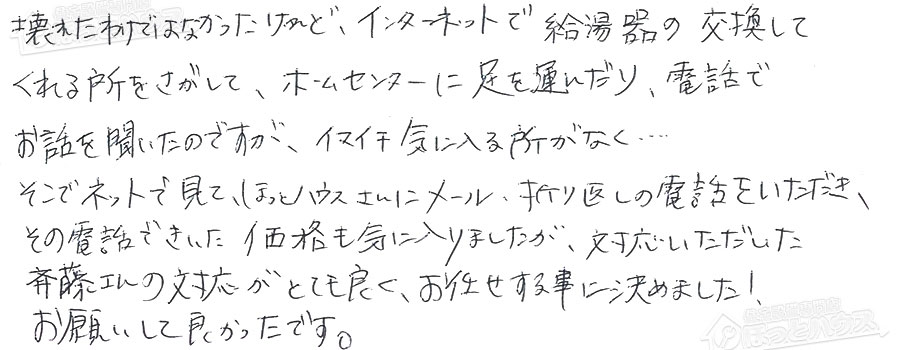 壊れたわけではなかったけれど、インターネットで給湯器の交換して
くれる所をさがして、ホームセンターに足を運んだり、電話で
お話を聞いたのですが、イマイチ気に入る所がなく……
そこでネットで見て、ほっとハウスさんにメール、折り返しの電話をいただき、
その電話できいた価格も気に入りましたが、対応いただいた
斉藤さんの対応がとても良く、お任せする事に決めました!
お願いして良かったです。
ほっとハウス